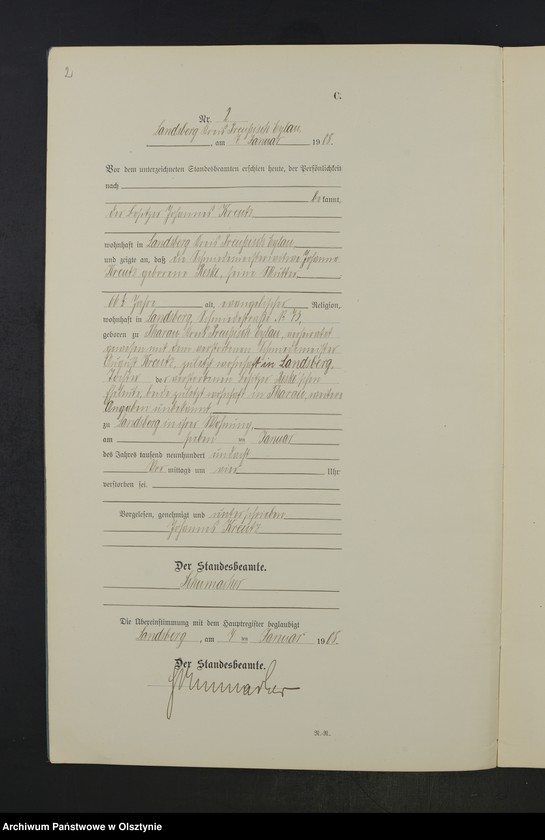 2.
C.
Nr. 2
Landsberg Kreis Preußisch Eylau
, am 7 Januar 1908.
Vor dem unterzeichneten Standesbeamten erschien heute, der Persönlichkeit
nach
bekannt,
der Besitzer Johannes Kreutz
wohnhaft in Landsberg Kreis Preußisch Eylau
und zeigte an, daß die Schmiedemeisterwitwe Johanna
Kreutz geborene, seine Mutter
66½ Jahre alt, evangelischer Religion,
wohnhaft in Landsberg,
geboren zu Tharau Kreis Preußisch Eylau, verheiratet
gewesen mit dem verstorbenen Schmiedemeister
August Kreutz, zuletzt wohnhaft in Landsberg,
Tochter der verstorbenen Besitzer
Eheleute, beide zuletzt wohnhaft in Tharau, weitere
Angaben unbekannt
zu Landsberg in ihrer Wohnung
am sieben ten Januar
des Jahres tausend neunhundert und acht
Vor mittags um vier Uhr
verstorben sei.
Vorgelesen, genehmigt und unterschrieben
Johannes Kreutz
Der Standesbeamte.
Schumacher
Die Übereinstimmung mit dem Hauptregister beglaubigt
Landsberg, am 7 ten Januar 1908.
Der Standesbeamte.
Schumacher
R.-R.
Archiwum Państwowe w Olsztynie